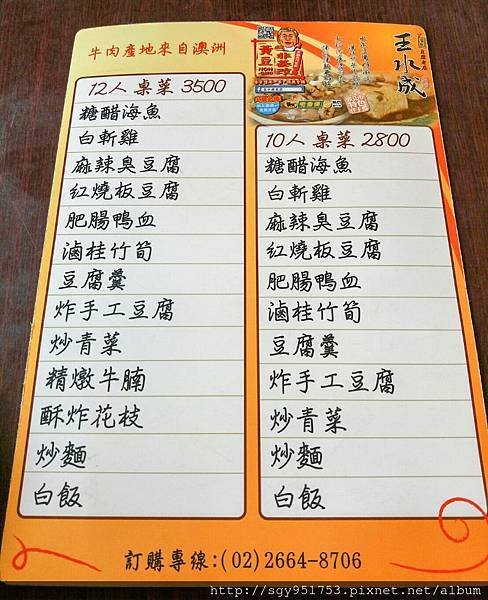 牛肉產地來自澳洲
12人 桌菜 3500
糖醋海魚
白斬雞
麻辣臭豆腐
紅燒板豆腐
肥腸鴨血
滷桂竹筍
豆腐羹
炸手工豆腐
炒青菜
精燉牛腩
酥炸花枝
炒麵
白飯
王水成
非基改
黃豆
10人 桌菜 2800
糖醋海魚
白斬雞
麻辣臭豆腐
紅燒板豆腐
肥腸鴨血
滷桂竹筍
豆腐羹
炸手工豆腐
炒青菜
炒麵
白飯
訂購專線:(02)2664-8706
http://sgy951753.pixnet.net/album